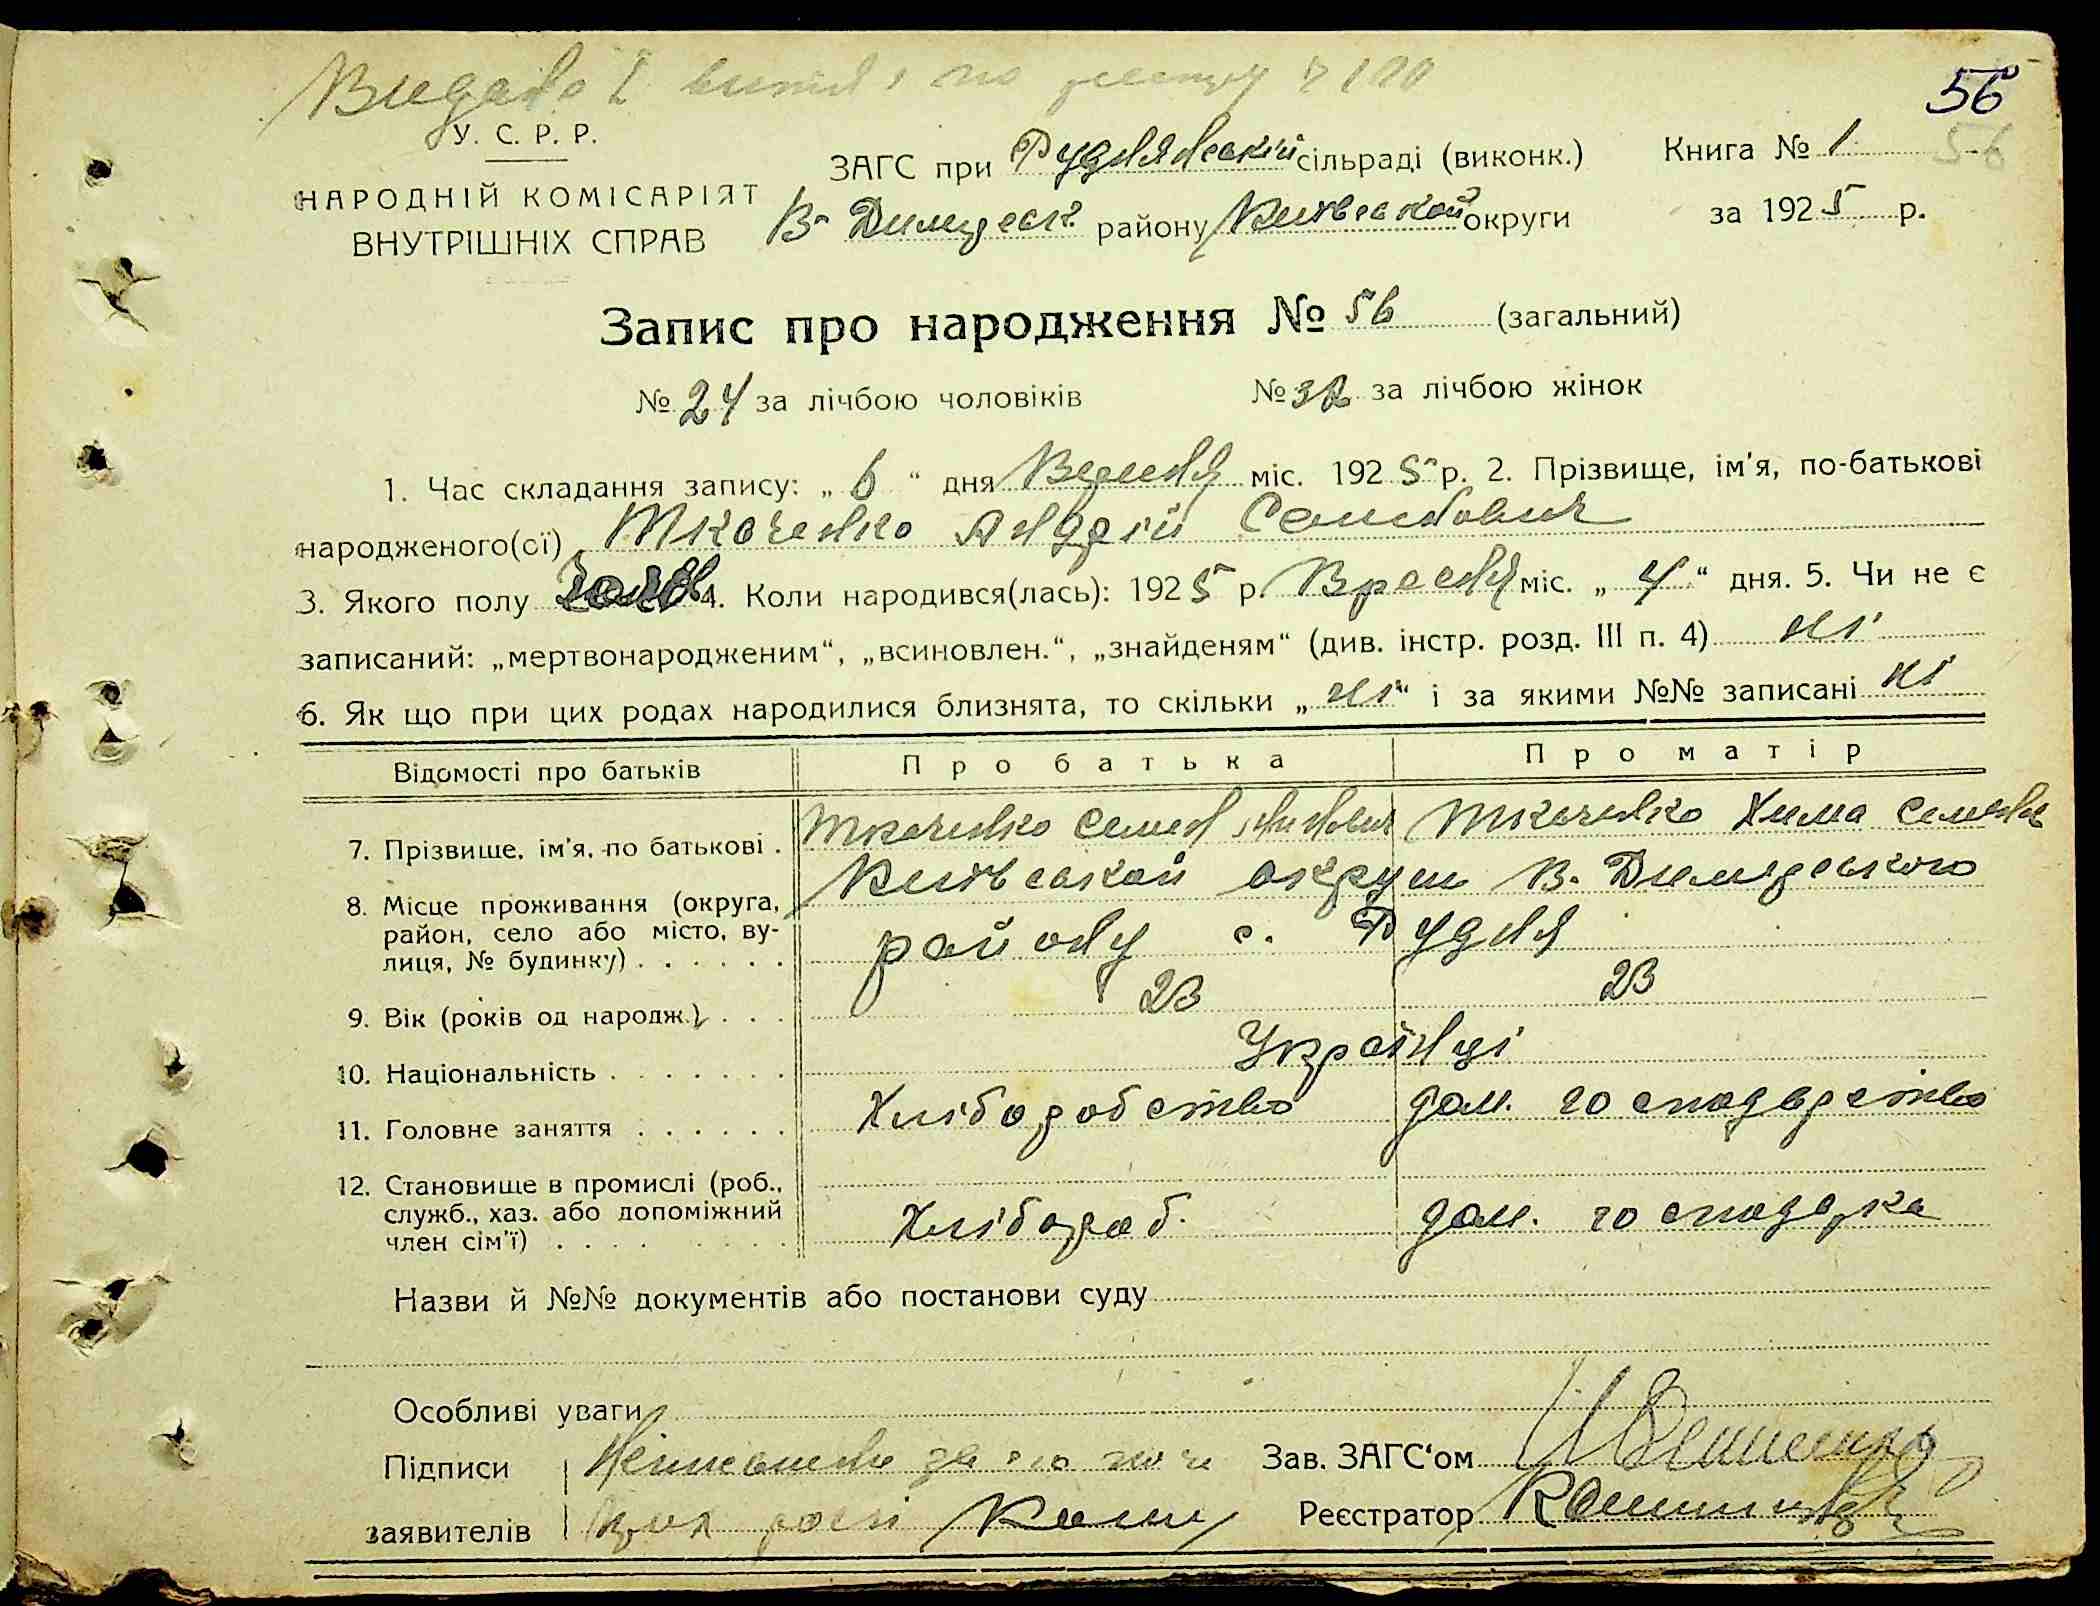 Видано 1 витяг по реєстру
56
У. С. Р. Р.
56
ЗАГС при Руднянській сільраді (виконк.) Книга № 1
НАРОДНІЙ КОМІСАРІЯТ
ВНУТРІШНІХ СПРАВ
В-Димерськ. району Київської округи за 1925 р.
Запис про народження № 56 (загальний)
№ 24 за лічбою чоловіків № 32 за лічбою жінок
1. Час складання запису: „ 6 “ дня міс. 1925 р. 2. Прізвище, ім'я, по-батькові
народженого(ої) Ткаченко Андрій Семенович
3. Якого полу чолов 4. Коли народився(лась): 1925 р. міс. „ 4 “ дня. 5. Чи не є
записаний: „мертвонародженим“, „всиновлен.“, „знайденям“ (див. інстр. розд. III п. 4) ні
6. Як що при цих родах народилися близнята, то скільки „ ні “ і за якими №№ записані ні
Відомості про батьків Про батька Про матір
7. Прізвище, ім'я, по батькові . Ткаченко Семен Ткаченко Хима
8. Місце проживання (округа, Київськой округи В. Димерського
район, село або місто, ву- району с. Рудня
лиця, № будинку) . . . . . .
9. Вік (років од народж.) . . . 23 23
10. Національність . . . . . . . Українці
11. Головне заняття . . . . . . Хліборобство дом. господарство
12. Становище в промислі (роб.,
служб., хаз. або допоміжний Хлібороб. дом. господарка
член сім'ї) . . . . . . . . .
Назви й №№ документів або постанови суду
Особливі уваги
Підписи Зав. ЗАГС‘ом
заявителів Реєстратор